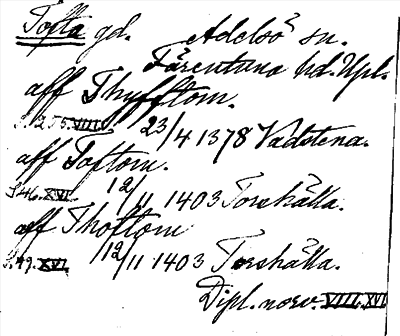 Tofta gd. Adelsö sn.
Färentuna hd. Upl.
aff Thyfftom.
S. 255. VIII. 23/4 1378 Vadstena.
aff Toftom.
S 46. XVI. 12/11 1403 Torshälla.
aff Thottom
S. 49. XVI. 12/11 1403 Torshälla.
Dipl. norv. VIII. XVI.